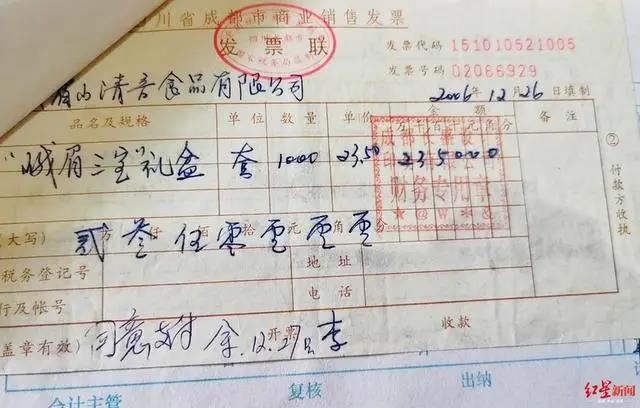 川省成都市商业销售发票
发票联
发票代码 151010521005
发票号码 02066929
眉山清音食品有限公司 2006年12月26日填制
品名及规格 单位 数量 单价 金额 备注
万千百十元角分
"峨眉三宝"礼盒 套 1000 23.50 2350000
财务专用章
(大写) 贰万叁仟伍佰零拾零元零角零分
税务登记号 地址
行及帐号 电话
盖章有效) 开票 收款
同意支付 余.12.27日 李
② 付款方收执
会计主管 复核 出纳
红星新闻